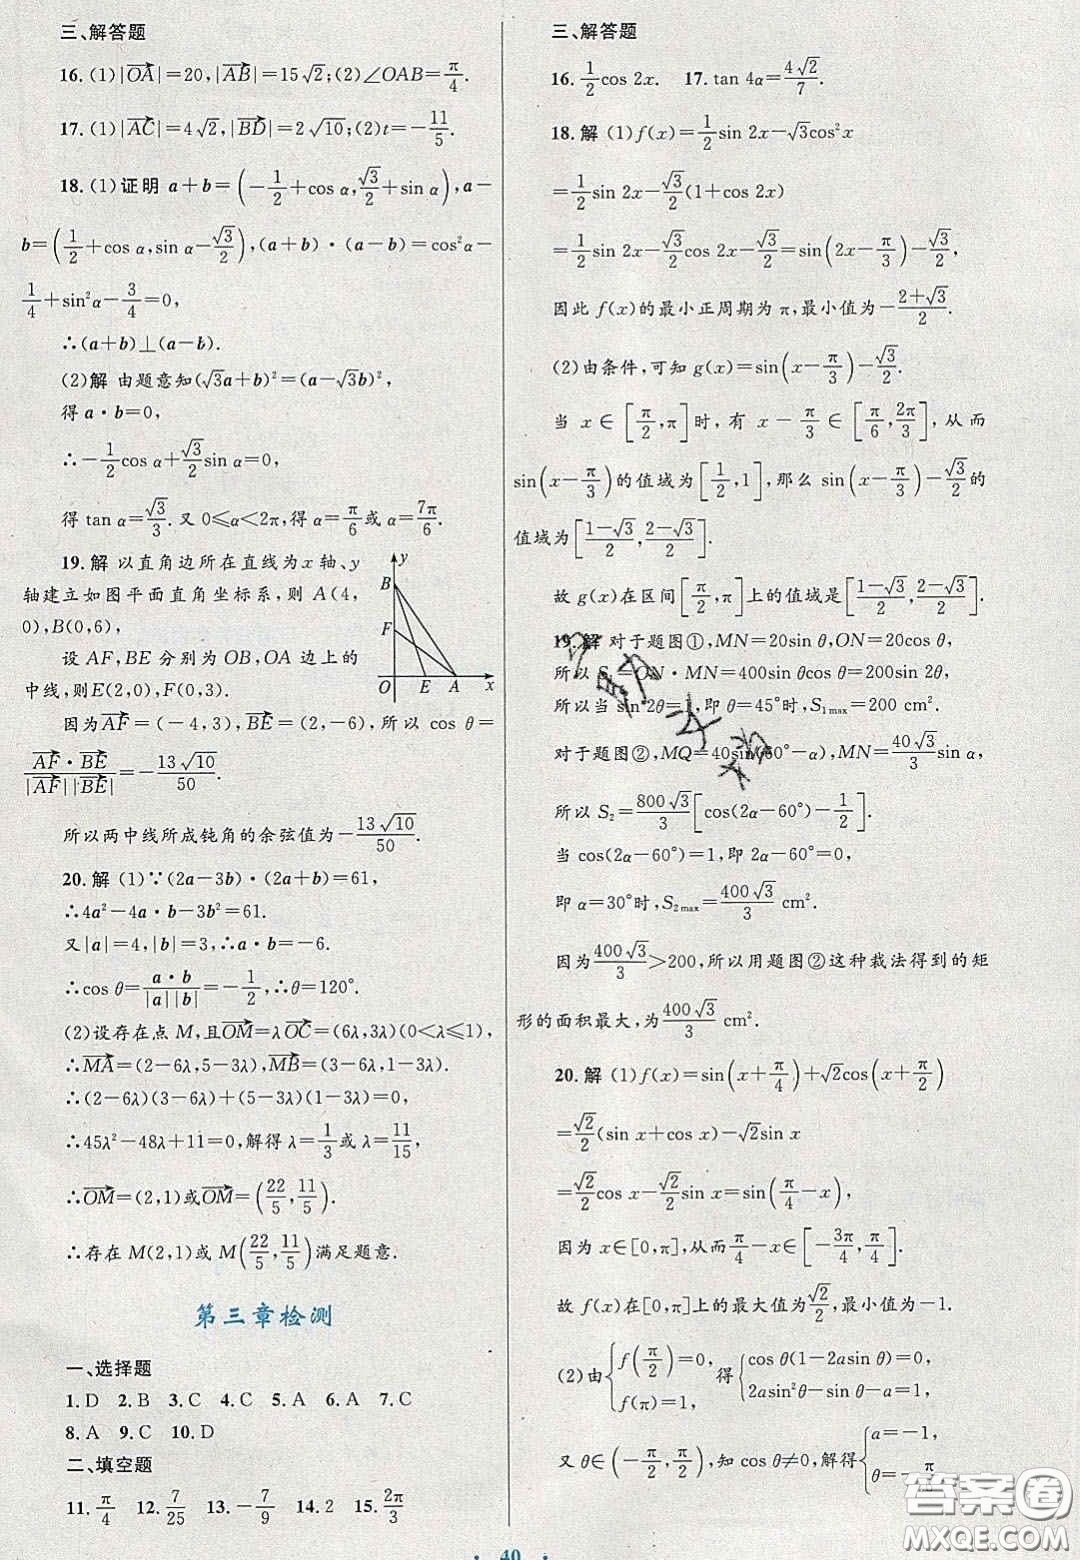 三、解答题
16. (1)|OA|=20,|AB|=15√2;(2)∠OAB=π/4.
17. (1)|AC|=4√2,|BD|=2√10;(2)t=-11/5.
18. (1)证明 a+b=(-1/2+cos α,√3/2+sin α),a-
b=(1/2+cos α,sin α-√3/2),(a+b)·(a-b)=cos²α-
1/4+sin²α-3/4=0,
∴(a+b)⊥(a-b).
(2)解 由题意知(√3a+b)²=(a-√3b)²,
得 a·b=0,
∴-1/2cos α+√3/2sin α=0,
得 tan α=√3/3.又 0≤α<2π,得 α=π/6或 α=7π/6.
19. 解 以直角边所在直线为 x 轴、y
轴建立如图平面直角坐标系,则 A(4,
0),B(0,6),
设 AF,BE 分别为 OB,OA 边上的
中线,则 E(2,0),F(0,3).
y
B
F
O E A x
因为AF=(-4,3),BE=(2,-6),所以 cos θ=
AF·BE/|AF||BE|=-13√10/50.
所以两中线所成钝角的余弦值为-13√10/50.
20. 解 (1)∵(2a-3b)·(2a+b)=61,
∴4a²-4a·b-3b²=61.
又|a|=4,|b|=3,∴a·b=-6.
∴cos θ=a·b/|a||b|=-1/2,∴θ=120°.
(2)设存在点 M,且OM=λOC=(6λ,3λ)(0<λ≤1),
∴MA=(2-6λ,5-3λ),MB=(3-6λ,1-3λ),
∴(2-6λ)(3-6λ)+(5-3λ)(1-3λ)=0,
∴45λ²-48λ+11=0,解得 λ=1/3或 λ=11/15,
∴OM=(2,1)或OM=(22/5,11/5).
∴存在 M(2,1)或 M(22/5,11/5)满足题意.
第三章检测
一、选择题
1. D 2. B 3. C 4. C 5. A 6. A 7. C
8. A 9. C 10. D
二、填空题
11. π/4 12. 7/25 13. -7/9 14. 2 15. 2π/3
三、解答题
16. 1/2cos 2x. 17. tan 4α=4√2/7.
18. 解 (1)f(x)=1/2sin 2x-√3cos²x
=1/2sin 2x-√3/2(1+cos 2x)
=1/2sin 2x-√3/2cos 2x-√3/2=sin(2x-π/3)-√3/2,
因此 f(x)的最小正周期为 π,最小值为-2+√3/2.
(2)由条件,可知 g(x)=sin(x-π/3)-√3/2.
当 x∈[π/2,π]时,有 x-π/3∈[π/6,2π/3],从而
sin(x-π/3)的值域为[1/2,1],那么 sin(x-π/3)-√3/2的
值域为[1-√3/2,2-√3/2].
故 g(x)在区间[π/2,π]上的值域是[1-√3/2,2-√3/2].
19. 解 对于题图①,MN=20sin θ,ON=20cos θ,
所以 S₁=ON·MN=400sin θcos θ=200sin 2θ,
所以当 sin 2θ=1,即 θ=45°时,S₁max=200 cm².
对于题图②,MQ=40sin(60°-α),MN=40√3/3sin α,
所以 S₂=800√3/3[cos(2α-60°)-1/2].
当 cos(2α-60°)=1,即 2α-60°=0°,
即 α=30°时,S₂max=400√3/3 cm².
因为400√3/3>200,所以用题图②这种裁法得到的矩
形的面积最大,为400√3/3 cm².
20. 解 (1)f(x)=sin(x+π/4)+√2cos(x+π/2)
=√2/2(sin x+cos x)-√2sin x
=√2/2cos x-√2/2sin x=sin(π/4-x),
因为 x∈[0,π],从而π/4-x∈[-3π/4,π/4].
故 f(x)在[0,π]上的最大值为√2/2,最小值为-1.
(2)由{f(π/2)=0, f(π)=1 得{cos θ(1-2asin θ)=0, 2asin²θ-sin θ-a=1.
又 θ∈(-π/2,π/2),知 cos θ≠0,解得{a=-1, θ=-π/
· 40 ·
答案圈
MXQE.COM